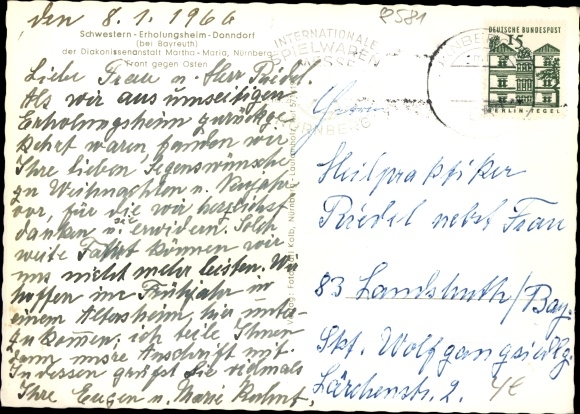 den 8.1.1966
R581
Schwestern-Erholungsheim-Donndorf
(bei Bayreuth)
der Diakonissenanstalt Martha-Maria, Nürnberg
Front gegen Osten
INTERNATIONALE
SPIELWAREN
MESSE
NÜRNBERG
DEUTSCHE BUNDESPOST
15
BERLIN-TEGEL
Liebe Frau u. Herr Riedel.
Als wir aus umseitigen
Erholungsheim zurückge-
kehrt waren, fanden wir
Ihre lieben Segenswünsche
zu Weihnachten u. Neujahr
vor, für die wir herzlichst
danken u. erwidern. Solch
weite Fahrt können wir
uns nicht mehr leisten. Wir
hoffen im Frühjahr in
einem Altersheim, hier unter-
zukommen; ich teile Ihnen
dann unsre Anschrift mit.
Indessen grüßt Sie vielmals
Ihre Eugen u. Marie
Heilpraktiker
Riedel nebst Frau
83 Landshuth/Bay.
Skt. Wolfgangsiedlg.
Lärchenstr. 2.